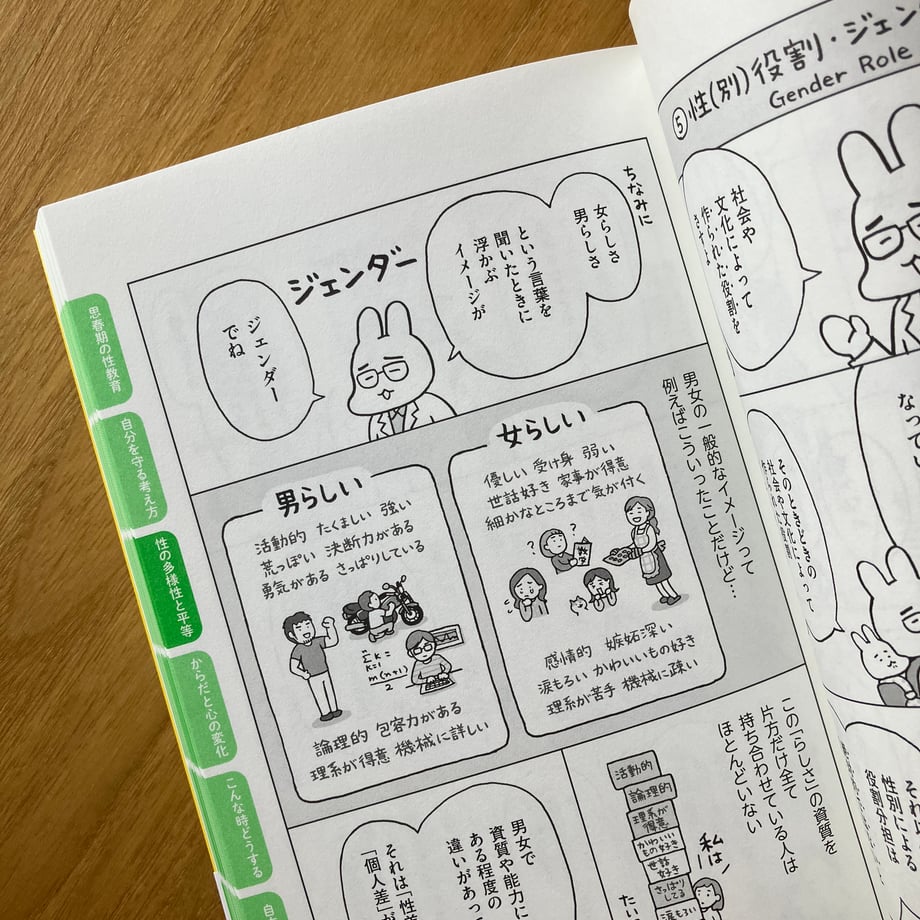 ⑤性(別)役割・ジェン
Gender Role
社会や
文化によって
作られた役割を
さすよ
なってい
そのときどきの
社会や文化によって
性別による
役割分担は
ちなみに
女らしさ
男らしさ
という言葉を
聞いたときに
浮かぶ
イメージが
ジェンダー
ジェンダー
でね
男女の一般的なイメージって
例えばこういったことだけど…
女らしい
優しい 受け身 弱い
世話好き 家事が得意
細かなところまで気が付く
? ?
感情的 嫉妬深い
涙もろい かわいいもの好き
理系が苦手 機械に疎い
男らしい
活動的 たくましい 強い
荒っぽい 決断力がある
勇気がある さっぱりしている
論理的 包容力がある
理系が得意 機械に詳しい
この「らしさ」の資質を
片方だけ全て
持ち合わせている人は
ほとんどいない
活動的
論理的
理系が
得意
かわいい
もの好き
世話
好き
さっぱり
してる
涙もろい
私は
男女で
資質や能力に
ある程度の
違いがあっ
それは「性差
「個人差」が
思春期の性教育
自分を守る考え方
性の多様性と平等
からだと心の変化
こんな時どうする